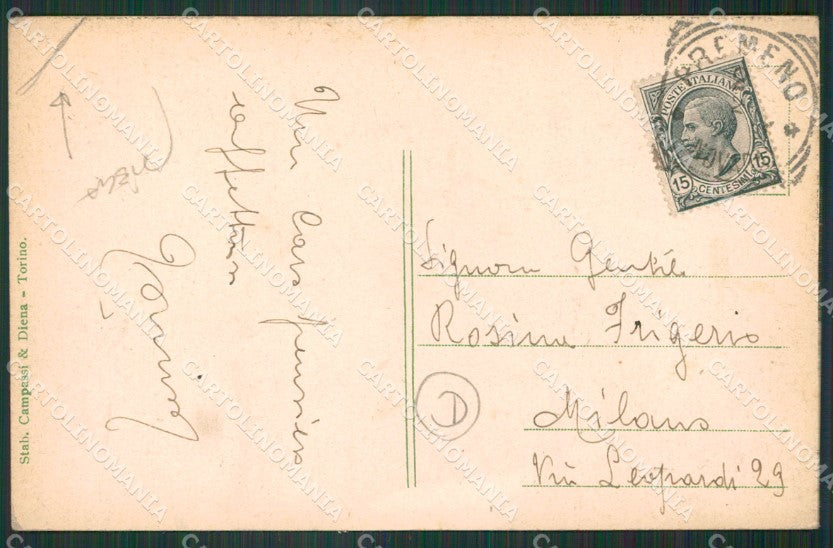 Un Caro pensiero
affettuoso
Stab. Campassi & Diena - Torino.
PREMENO
POSTE ITALIANE
15 CENTESIMI 15
Signora Gentile
Rosina Frigerio
Milano
Via Leopardi 29
D
CARTOLINOMANIA